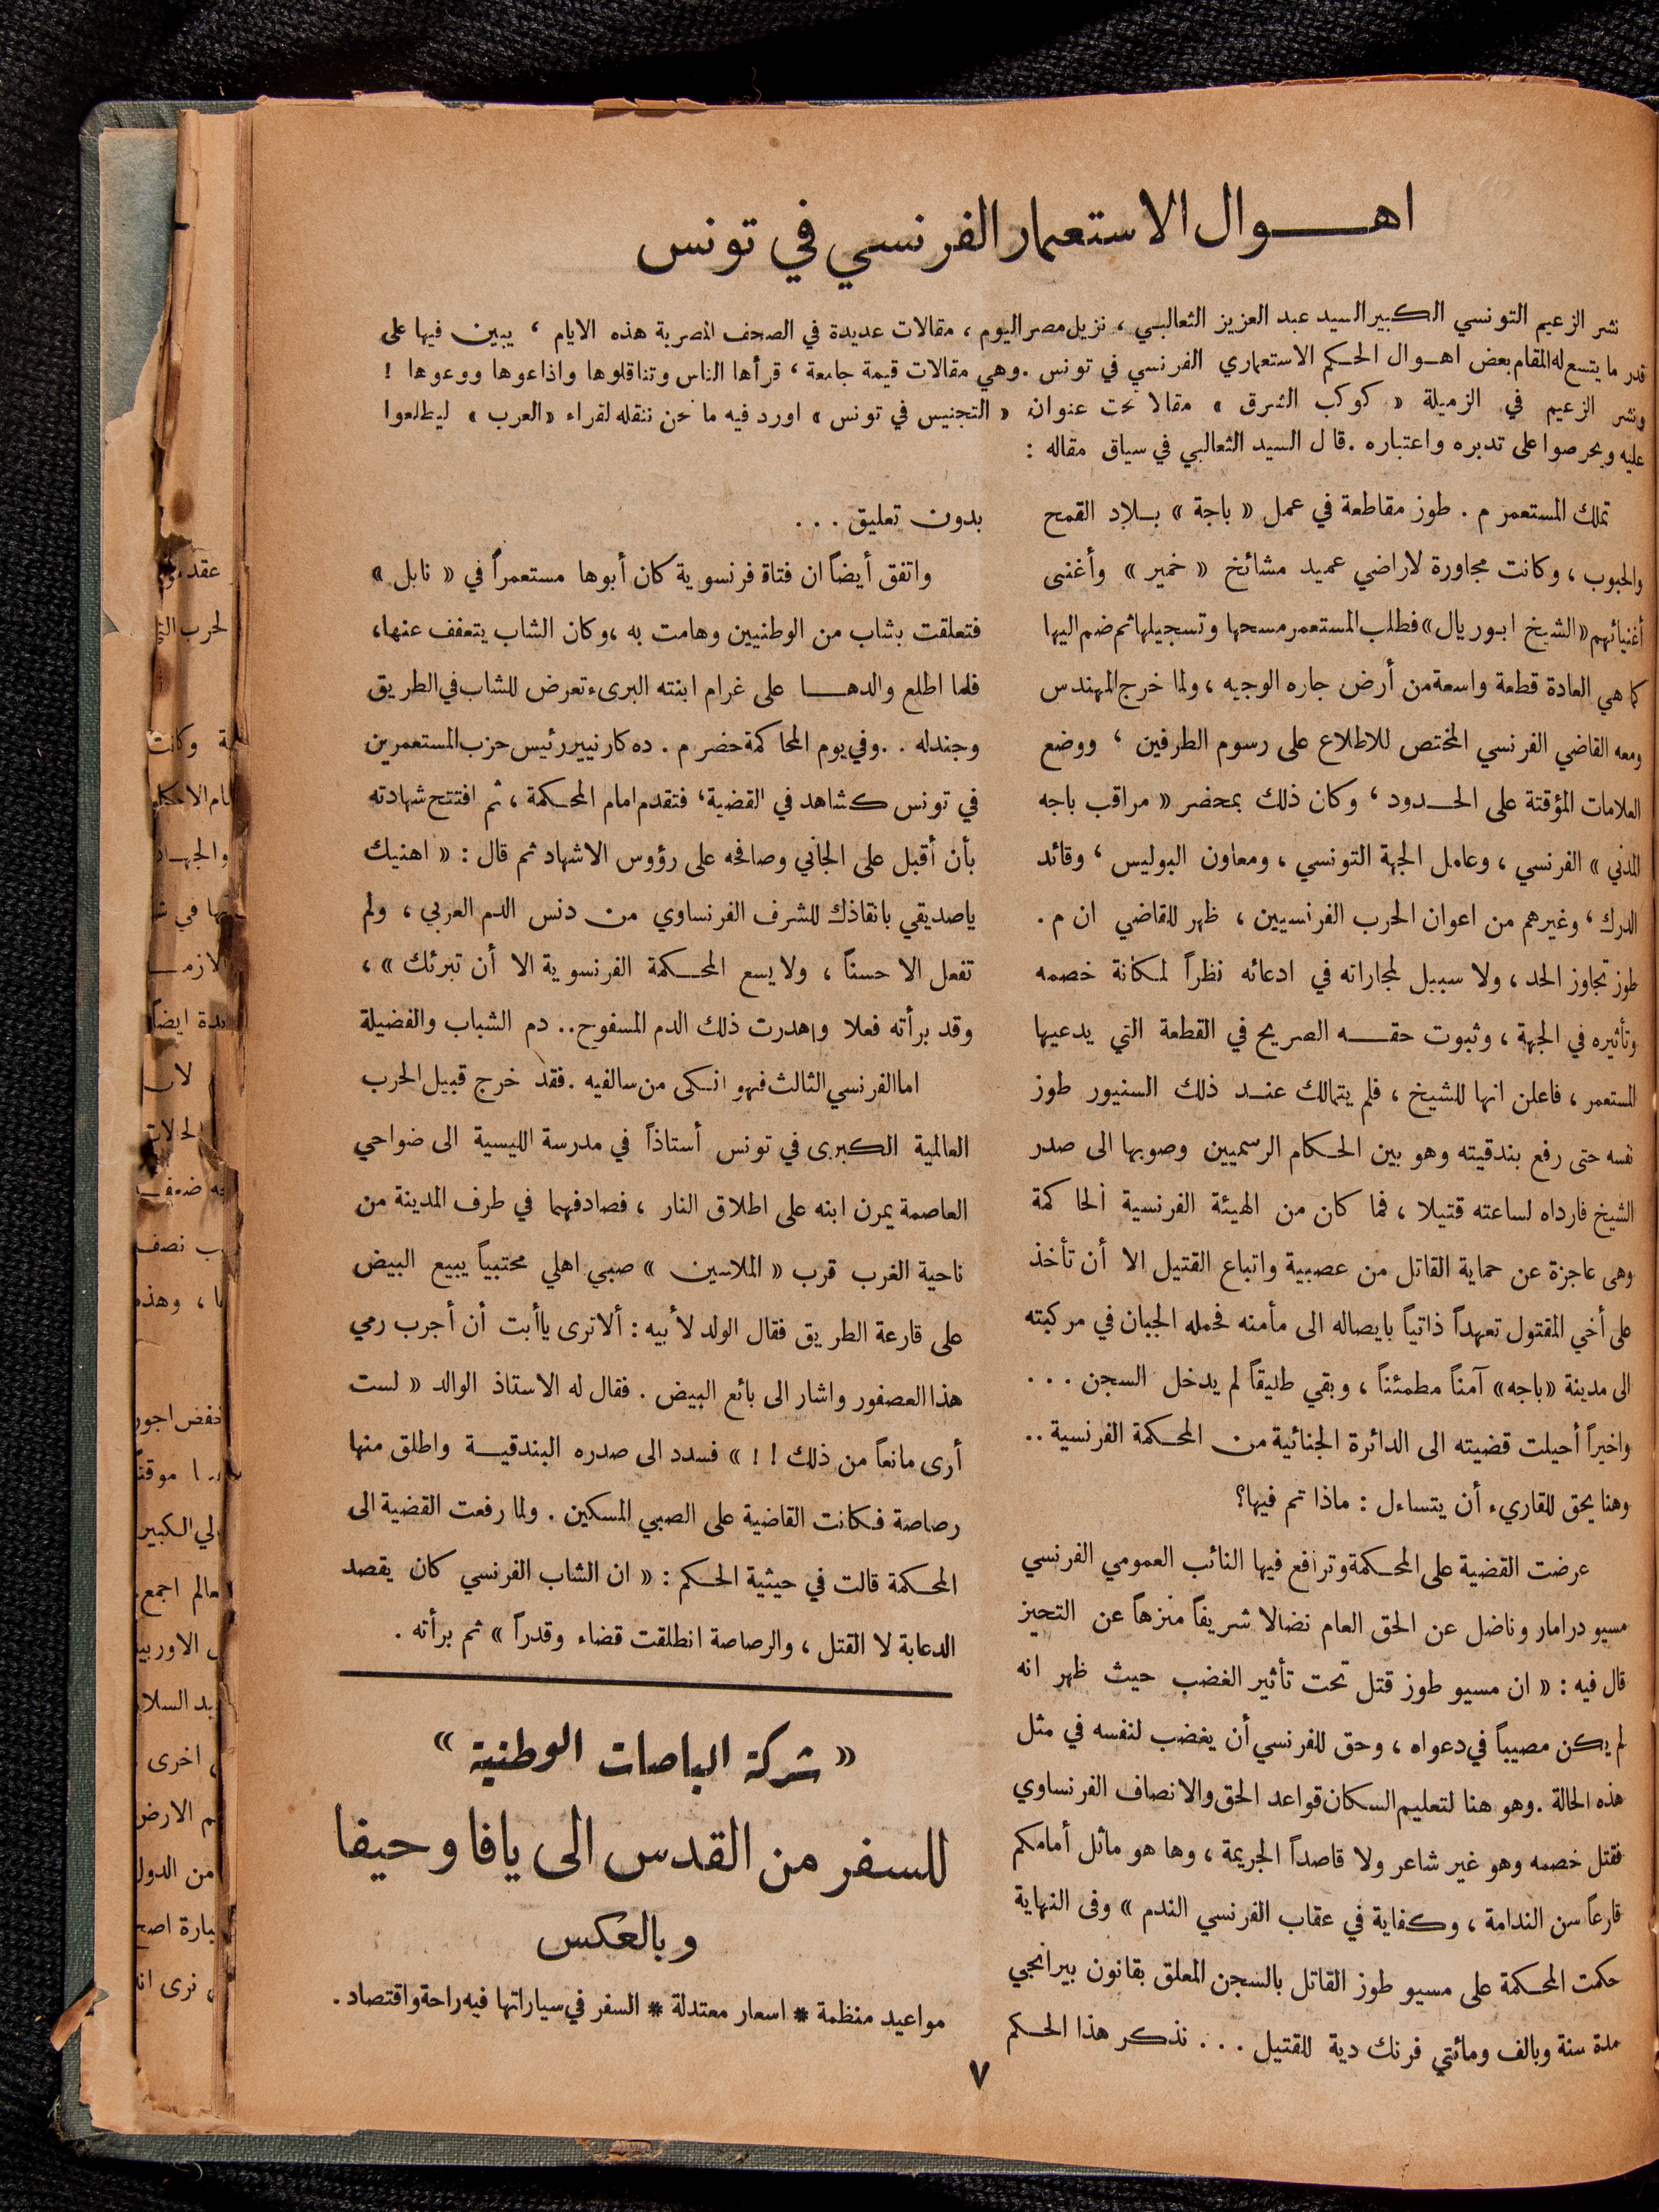 اهـــوال الاستعمار الفرنسي في تونس
نشر الزعيم التونسي الكبير السيد عبد العزيز الثعالبي ، نزيل مصر اليوم ، مقالات عديدة في الصحف المصرية هذه الايام ، يبين فيها على
قدر ما يتسع له المقام بعض اهـوال الحكم الاستعماري الفرنسي في تونس . وهي مقالات قيمة جامعة ، قرأها الناس وتناقلوها واذاعوها ووعوها !
ونشر الزعيم في الزميلة « كوكب الشرق » مقالا تحت عنوان « التجنيس في تونس » اورد فيه ما نحن ننقله لقراء « العرب » ليطلعوا
عليه ويحرصوا على تدبره واعتباره . قال السيد الثعالبي في سياق مقاله :
تملك المستعمر م . طوز مقاطعة في عمل « باجة » بـلاد القمح
والحبوب ، وكانت مجاورة لاراضي عميد مشائخ « خمير » وأغنى
أغنيائهم « الشيخ ابوريال » فطلب المستعمر مسحها وتسجيلها ثم ضم اليها
كما هي العادة قطعة واسعة من أرض جاره الوجيه ، ولما خرج المهندس
ومعه القاضي الفرنسي المختص للاطلاع على رسوم الطرفين ، ووضع
العلامات المؤقتة على الحـدود ، وكان ذلك بمحضر « مراقب باجه
المدني » الفرنسي ، وعامل الجهة التونسي ، ومعاون البوليس ، وقائد
الدرك ، وغيرهم من اعوان الحرب الفرنسيين ، ظهر للقاضي ان م .
طوز تجاوز الحد ، ولا سبيل لمجاراته في ادعائه نظراً لمكانة خصمه
وتأثيره في الجهة ، وثبوت حقـه الصريح في القطعة التي يدعيها
المستعمر ، فاعلن انها للشيخ ، فلم يتمالك عنـد ذلك السنيور طوز
نفسه حتى رفع بندقيته وهو بين الحكام الرسميين وصوبها الى صدر
الشيخ فارداه لساعته قتيلا ، فما كان من الهيئة الفرنسية الحاكمة
وهى عاجزة عن حماية القاتل من عصبية واتباع القتيل الا أن تأخذ
على أخي المقتول تعهداً ذاتياً بايصاله الى مأمنه فحمله الجبان في مركبته
الى مدينة « باجه » آمناً مطمئناً ، وبقي طليقاً لم يدخل السجن . . .
واخيراً أحيلت قضيته الى الدائرة الجنائية من المحكمة الفرنسية ..
وهنا يحق للقاريء أن يتساءل : ماذا تم فيها؟
عرضت القضية على المحكمة وترافع فيها النائب العمومي الفرنسي
مسيو درامار وناضل عن الحق العام نضالا شريفاً منزهاً عن التحيز
قال فيه : « ان مسيو طوز قتل تحت تأثير الغضب حيث ظهر انه
لم يكن مصيباً في دعواه ، وحق للفرنسي أن يغضب لنفسه في مثل
هذه الحالة . وهو هنا لتعليم السكان قواعد الحق والانصاف الفرنساوي
فقتل خصمه وهو غير شاعر ولا قاصداً الجريمة ، وها هو ماثل أمامكم
قارعاً سن الندامة ، وكفاية في عقاب الفرنسي الندم » وفى النهاية
حكمت المحكمة على مسيو طوز القاتل بالسجن المعلق بقانون بيرانجي
مدة سنة وبالف ومائتي فرنك دية للقتيل . . . نذكر هذا الحكم
بدون تعليق . . .
واتفق أيضاً ان فتاة فرنسوية كان أبوها مستعمراً في « نابل »
فتعلقت بشاب من الوطنيين وهامت به ، وكان الشاب يتعفف عنها ،
فلما اطلع والدهـا على غرام ابنته البرىء تعرض للشاب في الطريق
وجندله . . وفي يوم المحاكمة حضر م . ده كارنيير رئيس حزب المستعمرين
في تونس كشاهد في القضية ، فتقدم امام المحكمة ، ثم افتتح شهادته
بأن أقبل على الجاني وصافحه على رؤوس الاشهاد ثم قال : « اهنيك
ياصديقي بانقاذك للشرف الفرنساوي من دنس الدم العربي ، ولم
تفعل الا حسناً ، ولا يسع المحكمة الفرنسوية الا أن تبرئك » ،
وقد برأته فعلا واهدرت ذلك الدم المسفوح .. دم الشباب والفضيلة
اما الفرنسي الثالث فهو انكى من سالفيه . فقد خرج قبيل الحرب
العالمية الكبرى في تونس أستاذاً في مدرسة الليسية الى ضواحي
العاصمة يمرن ابنه على اطلاق النار ، فصادفهما في طرف المدينة من
ناحية الغرب قرب « الملاسين » صبي اهلي محتبياً يبيع البيض
على قارعة الطريق فقال الولد لأبيه : ألا ترى ياأبت أن أجرب رمي
هذا العصفور واشار الى بائع البيض . فقال له الاستاذ الوالد « لست
أرى مانعاً من ذلك ! ! » فسدد الى صدره البندقيـة واطلق منها
رصاصة فكانت القاضية على الصبي المسكين . ولما رفعت القضية الى
المحكمة قالت في حيثية الحكم : « ان الشاب الفرنسي كان يقصد
الدعابة لا القتل ، والرصاصة انطلقت قضاء وقدراً » ثم برأته .
« شركة الباصات الوطنية »
للسفر من القدس الى يافا وحيفا
وبالعكس
مواعيد منظمة * اسعار معتدلة * السفر في سياراتها فيه راحة واقتصاد .
٧
عقد
وكانت
ايضاً
لان
نصف
، وهذه
اجور
الكبير
اجمع
السلا
اخرى
الارض
من الدول
نرى